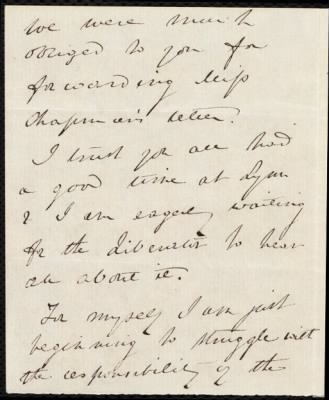 We were much
obliged to you for
forwarding Miss
Chapman's letter.
I trust you all had
a good time at Lynn
& I am eagerly waiting
for the Liberator to hear
all about it.
For myself I am just
beginning to struggle with
the responsibility of the